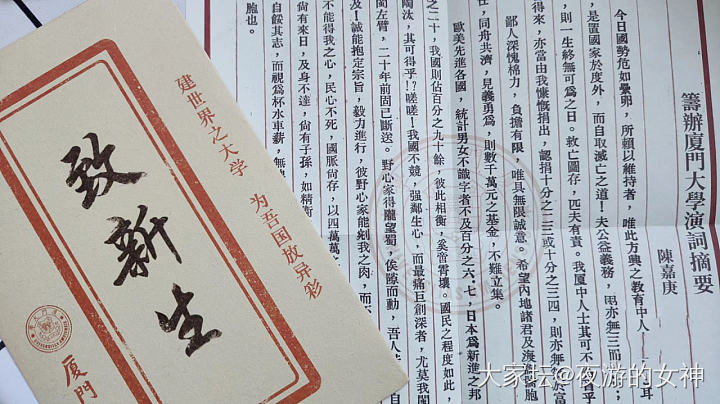 致新生
建世界之大学 为吾国放异彩
厦門
籌辦厦門大學演詞摘要
陳嘉庚
今日國勢危如疊卵，所賴以維持者，唯此方興之教育中人 耳
是置國家於度外，而自取滅亡之道！夫公益義務， 亦無三而 ；
，則一生終無可爲之日。救亡圖存，匹夫有責。我厦中人士其可不 乎
得來，亦當由我慷慨捐出，認捐十分之二三或十分之三四，則亦無 於富
鄙人深愧棉力，負擔有限，唯具無限誠意。希望內地諸君及海 胞
任，同舟共濟，見義勇爲，則數千萬元之基金，不難立集。
歐美先進各國，統計男女不識字者不及百分之六、七，日本爲新進之邦
之二十，我國則佔百分之九十餘，彼此相衡，奚啻霄壤。國民之程度如此，
陶汰，其可得乎！？嗟嗟！我國不競，强鄰生心，而最痛巨創深者，尤莫我閩
閩左臂，二十年前固已斷送。野心家得隴望蜀，俟隙而動，吾人若
及！誠能抱定宗旨，毅力進行，彼野心家能剜我之肉，而
不能得我之心，民心不死，國脈尚存，以四萬萬
尚有來日，及身不達，尚有子孫，如精衛
自餒其志，而視爲杯水車薪，無
胞也。
大家坛@夜游的女神